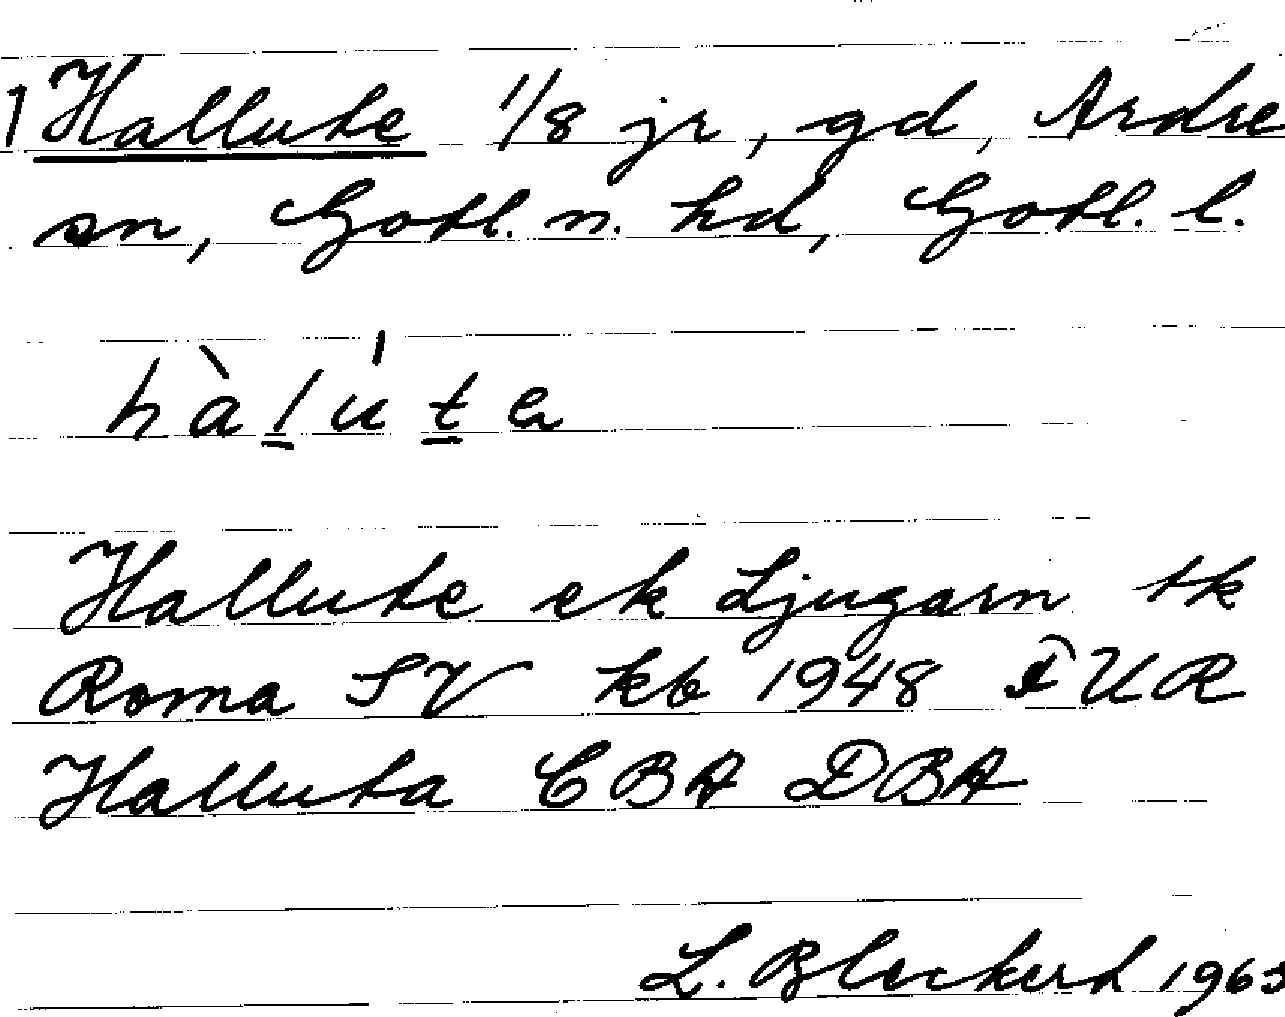 1 Hallute 1/8 jr, gd, Ardre
sn, Gotl. n. hd, Gotl. l.
hàlúta
Hallute ek Ljugarn tk
Roma SV kb 1948 UR
Halluta CBA DBA
L. Bleckert 1963